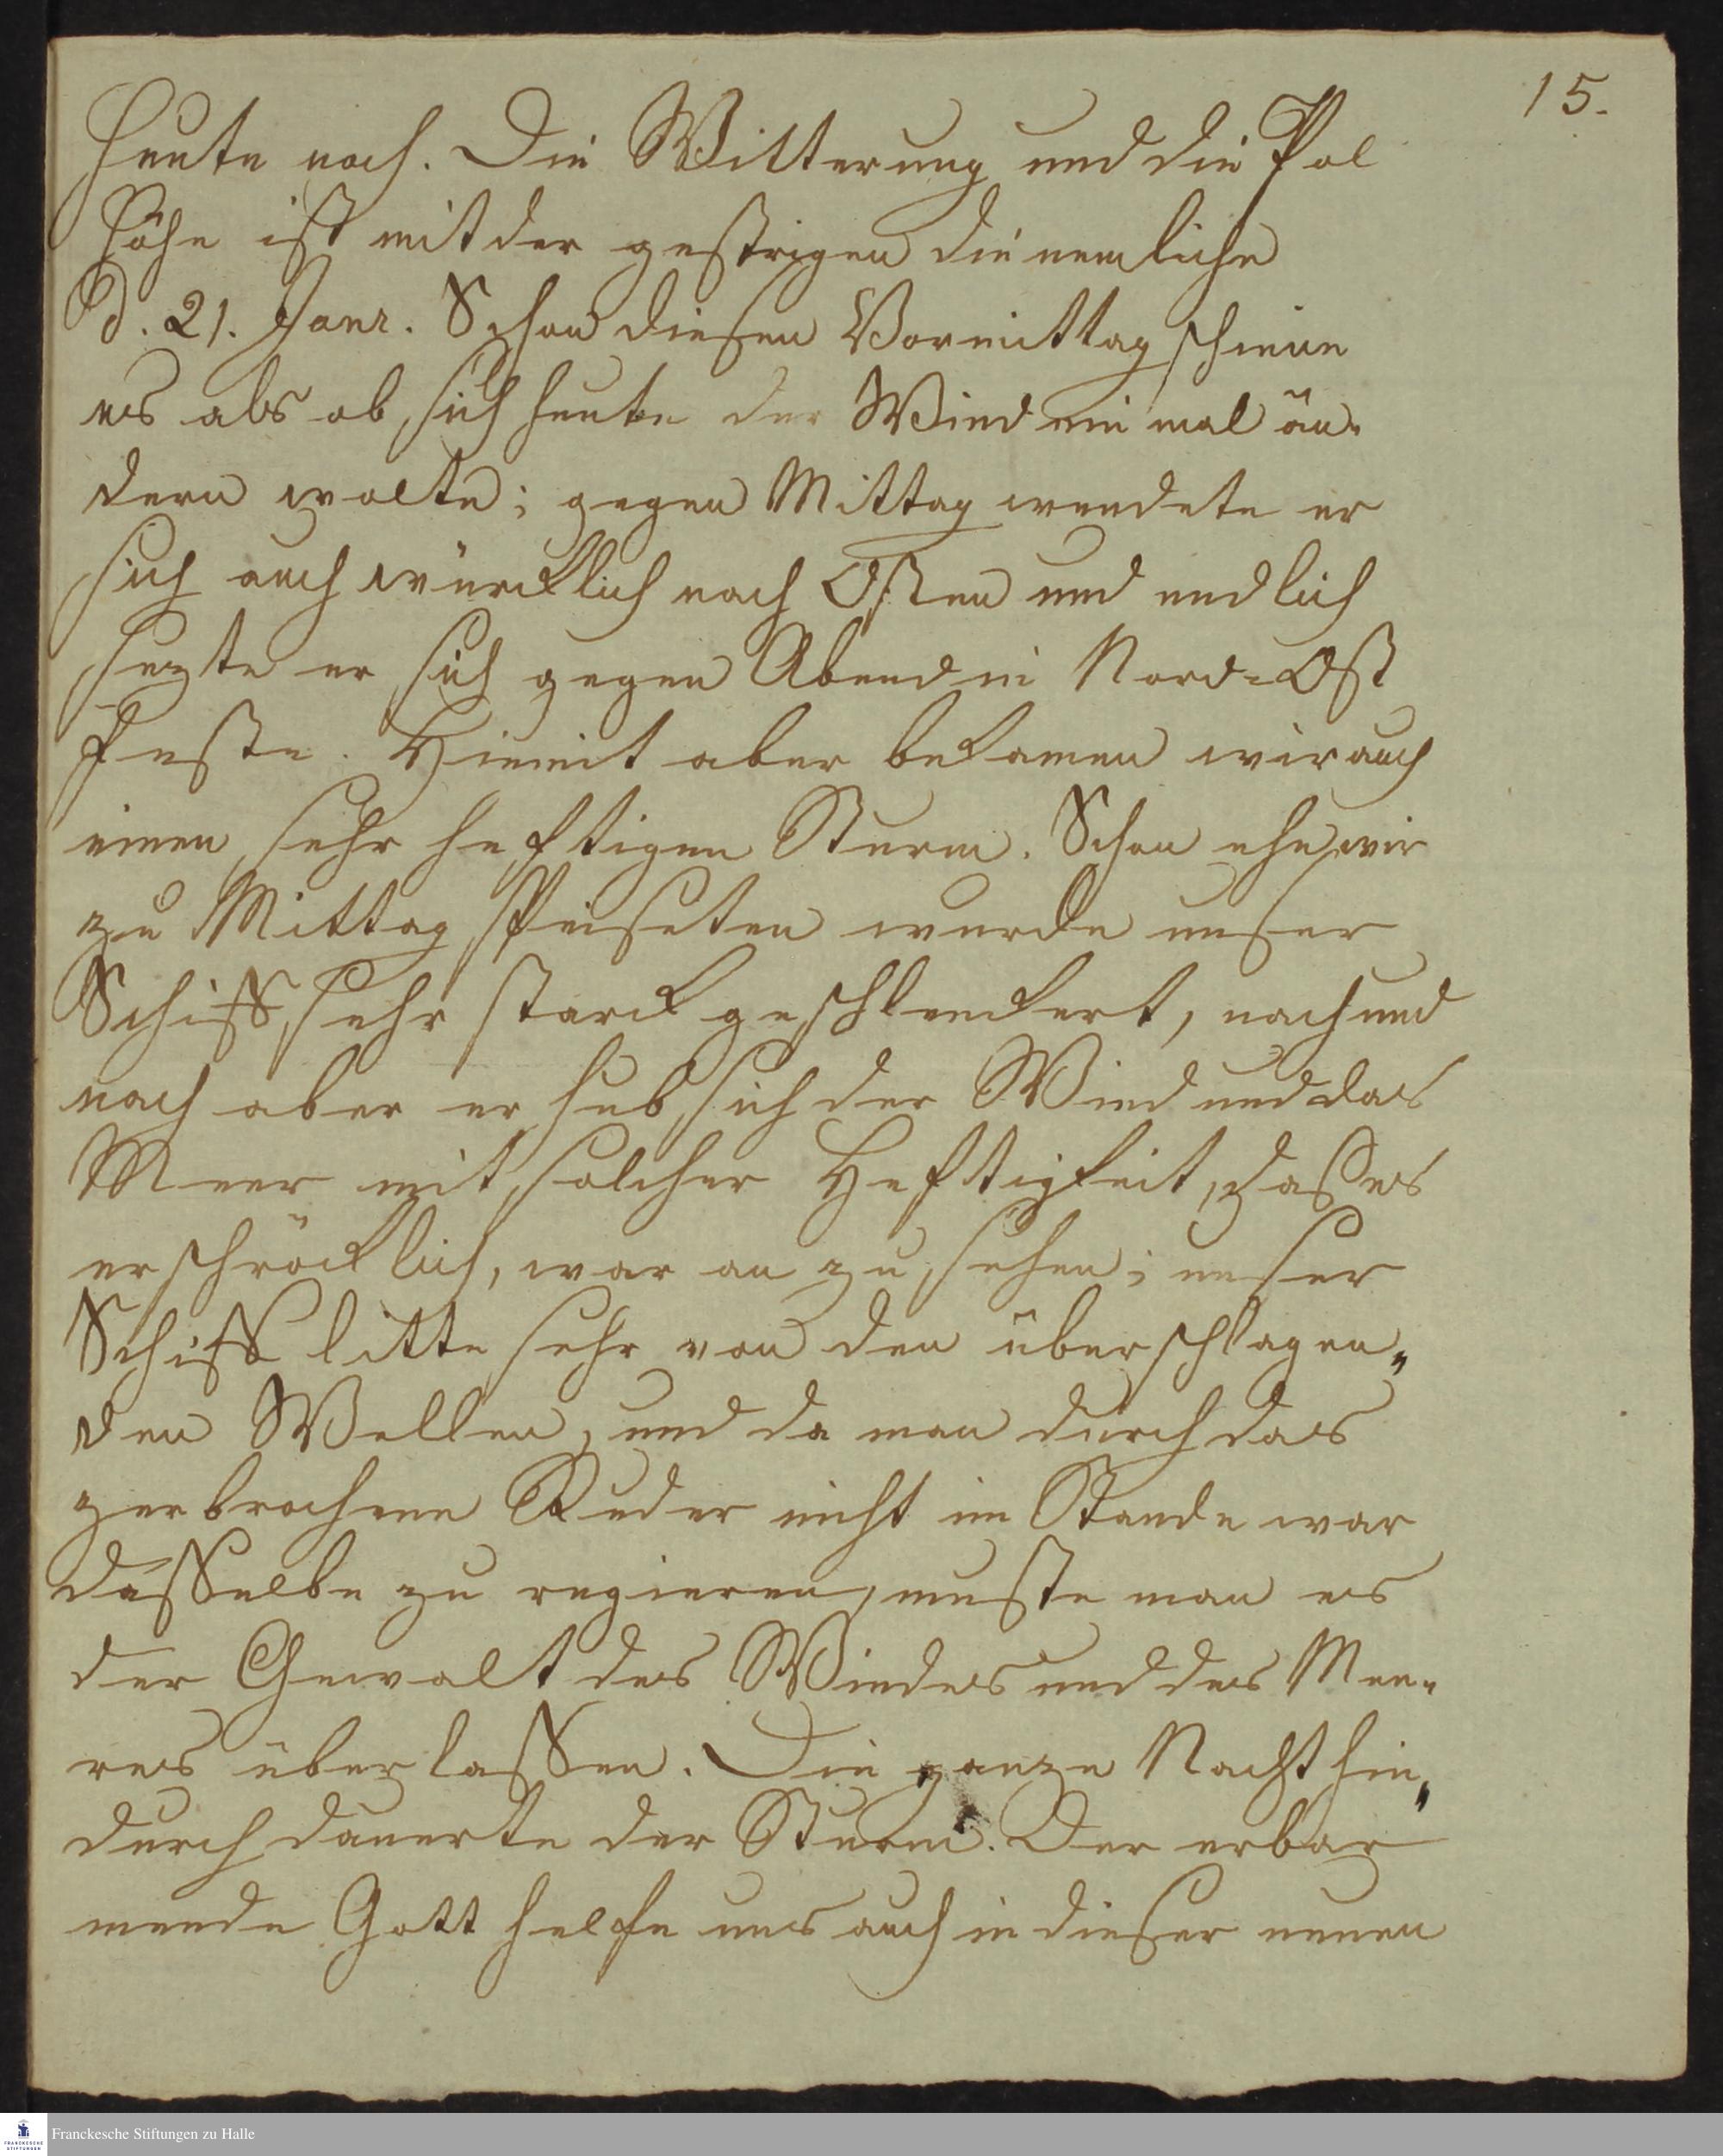 15.
heute noch. Die Witterung und die Pol
höhe ist mit der gestrigen die nemliche
d. 21. Janr. Schon diesen Vormittag schiene
es als ob sich heute der Wind ein mal än-
dern wolte; gegen Mittag wendete er
sich auch würcklich nach Osten und endlich
sezte er sich gegen Abend in Nord-Ost
feste. Hiemit aber bekamen wir auch
einen sehr heftigen Sturm. Schon ehe wir
zu Mittag speiseten wurde unser
Schiff sehr starck geschlenckert, nach und
nach aber er hub sich der Wind und das
Meer mit solcher Heftigkeit, daß es
erschröcklich, war an zu sehen; unser
Schiff litte sehr von den überschlagen„
den Wellen, und da man durch das
zerbrochene Ruder nicht im Stande war
dasselbe zu regieren, muste man es
der Gewalt des Windes und des Mee-
res überlassen. Die ganze Nacht hin„
durch dauerte der Sturm. Der erbar
mende Gott helfe uns auch in dieser neuen
FRANCKESCHE STIFTUNGEN
Franckesche Stiftungen zu Halle